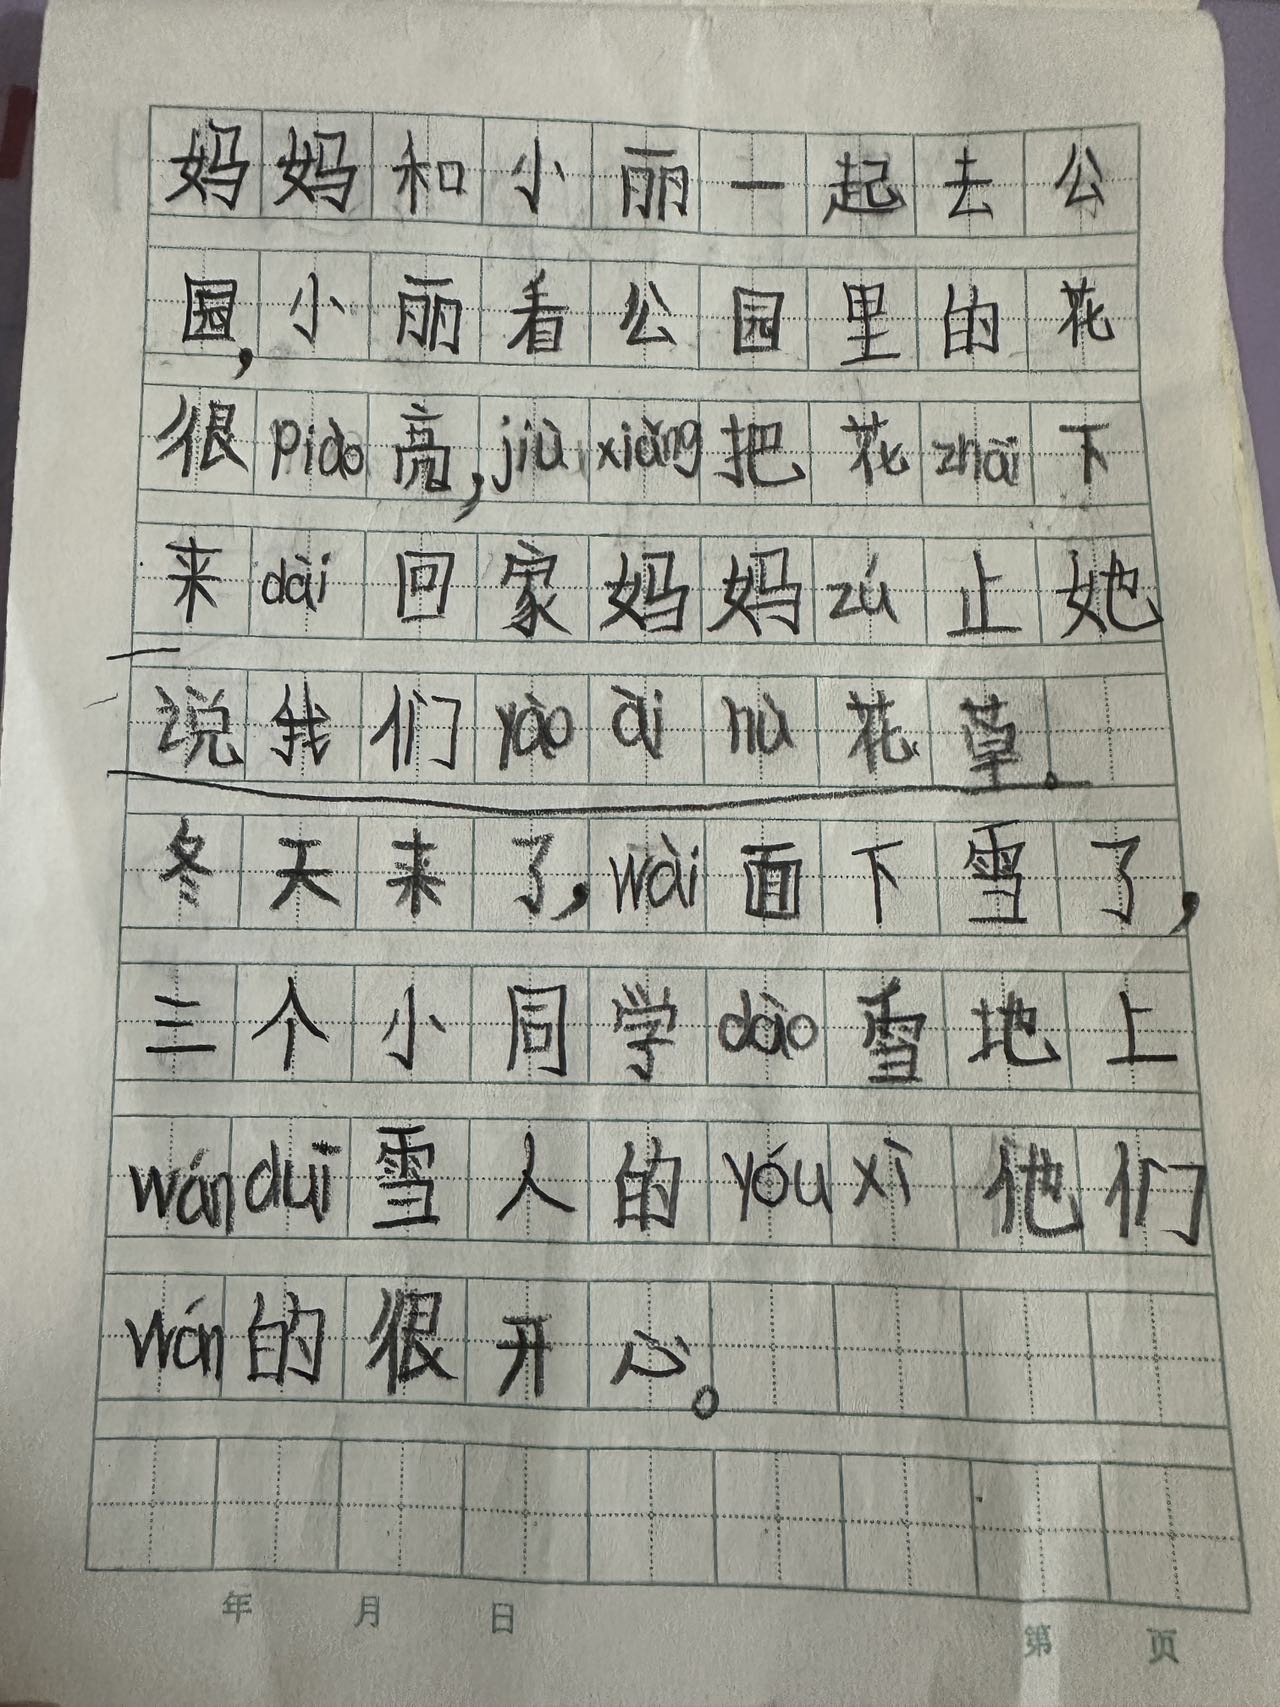 妈妈和小丽一起去公
园,小丽看公园里的花
很piào亮,jiù xiǎng把花zhāi下
来dài回家妈妈zú止她
说我们yào ài hù花草.
冬天来了,wài面下雪了,
三个小同学dào雪地上
wán duī雪人的yóu xì他们
wán的很开心。
年 月 日
第 页